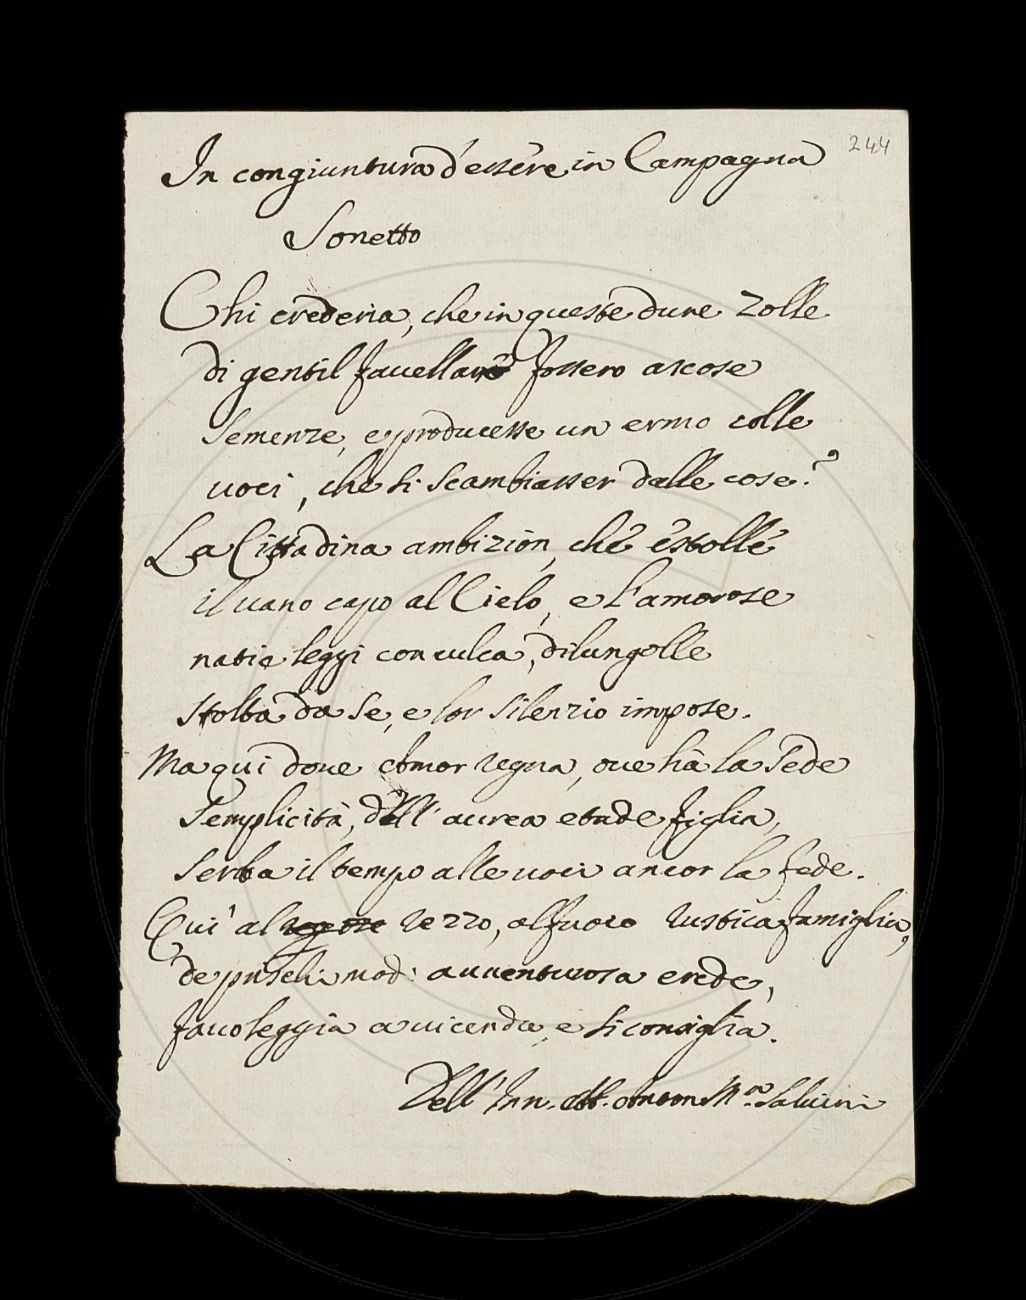 244
In congiuntura d'essere in Campagna
Sonetto
Chi crederia, che in queste dure zolle
di gentil favellare fossero ascose
semenze, e producesse un ermo colle
voci, che si scambiasser dalle cose?
La Cittadina ambizion, che estolle
il vano capo al Cielo, e l'amorose
natie leggi conculca, dilungolle
stolta da se, e lor silenzio impose.
Ma qui dove Amor regna, ove hà la sede
Semplicità, dell'aurea etade figlia,
serba il tempo alle voci ancor la fede.
Qui al rezzo, al fuoco rustica famiglia,
de prischi modi avventurosa erede,
favoleggia a vicenda, e si consiglia.
Dell' Ab. Anton M.ª Salvini